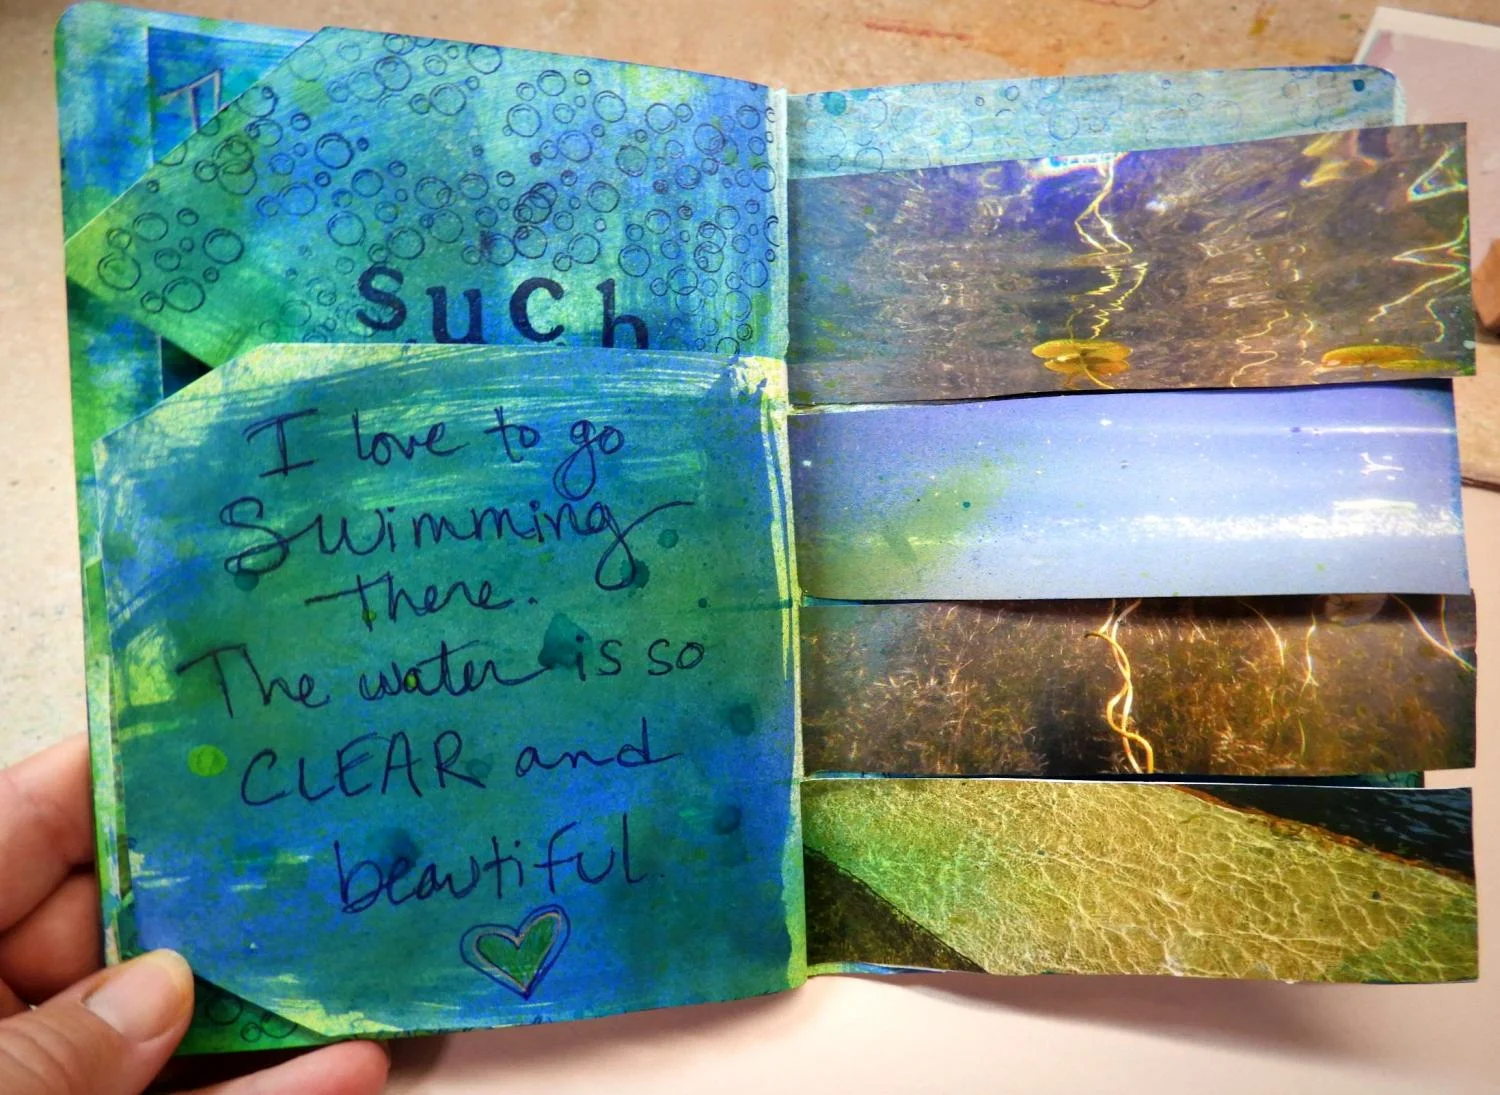 Such
I love to go
Swimming
there.
The water is so
CLEAR and
beautiful.